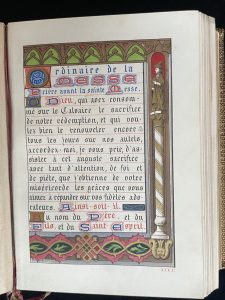 Ordinaire de la
MESSE
Prière avant la sainte Messe.
O Dieu, qui avez consom-
mé sur le Calvaire le sacrifice
de notre rédemption, et qui vou-
lez bien le renouveler encore
tous les jours sur nos autels,
accordez-moi, je vous prie, d'as-
sister à cet auguste sacrifice
avec tant d'attention, de foi et
de piété, que j'obtienne de votre
miséricorde les grâces que vous
aimez à répandre sur vos fidèles ado-
rateurs. Ainsi soit-il.
Au nom du Père, et du
Fils, et du Saint-Esprit.